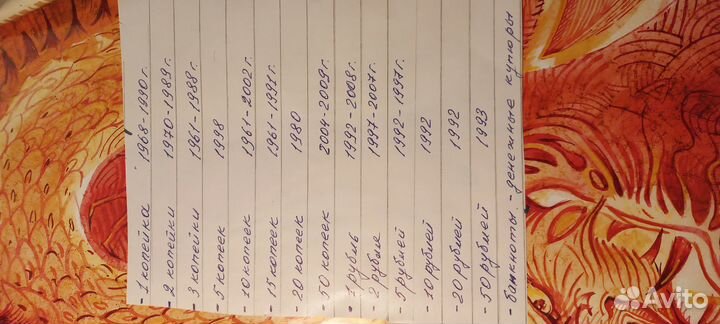 - 1 копейка 1968-1990 г.
- 2 копейки 1970-1989 г.
- 3 копейки 1961-1988 г.
- 5 копеек 1998
- 10 копеек 1961-2002 г.
- 15 копеек 1961-1991 г.
- 20 копеек 1980
- 50 копеек 2004-2009 г.
- 1 рубль 1992-2008 г.
- 2 рубля 1997-2007 г.
- 5 рублей 1992-1997 г.
- 10 рублей 1992
- 20 рублей 1992
- 50 рублей 1993
- банкноты - денежные купюры
Avito